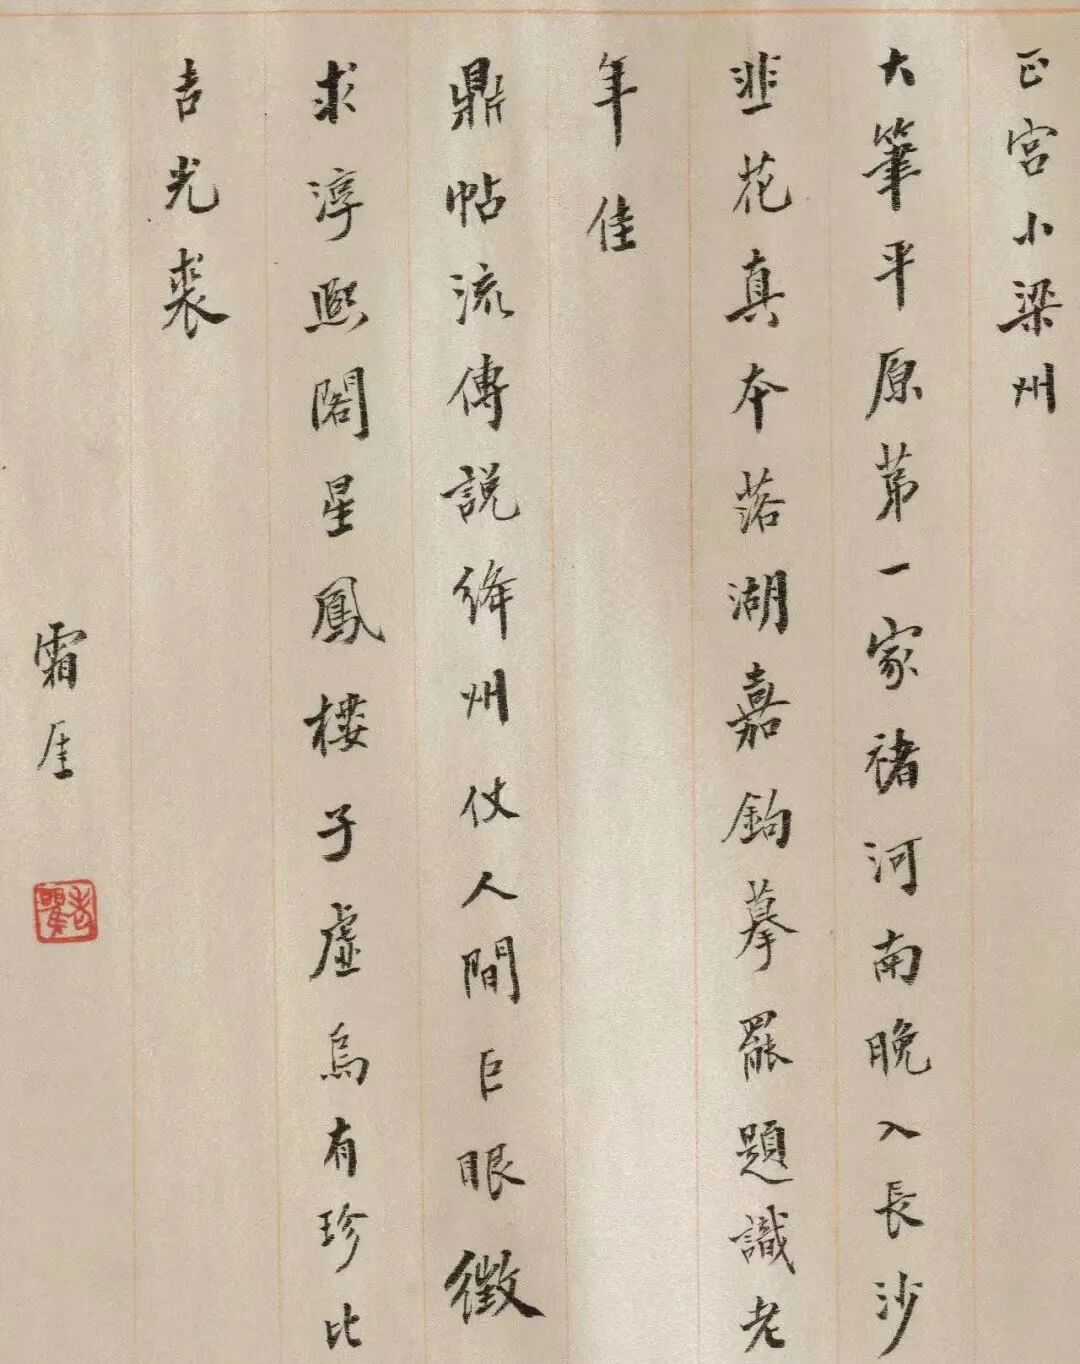 正宮小梁州
大筆平原第一家褚河南晚入長沙
韭花真本落湖嘉鉤摹罷題識老
年佳
鼎帖流傳說絳州仗人間巨眼徵
求淳熙閣星鳳樓子虛烏有珍比
吉光裘
霜厓